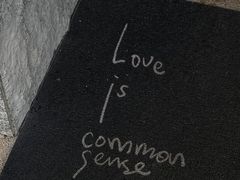 Love
is
common
sense